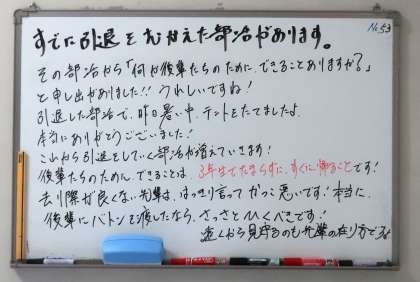 No.53
すでに引退をむかえた部活があります。
その部活から「何か後輩たちのために、できることありますか?」
と申し出がありました!! うれしいですね!
引退した部活で、昨日暑い中、テントをたてましたよ
本当にありがとうございました!
これから引退をしていく部活が増えていきます!
後輩たちのためにできることは、3年生でたまらずに、すぐに帰ることです!
去り際が良くない先輩は、はっきり言ってかっこ悪いです!本当に、
後輩にバトンを渡したなら、さっさとひくべきです!
遠くから見守るのも先輩の在り方です